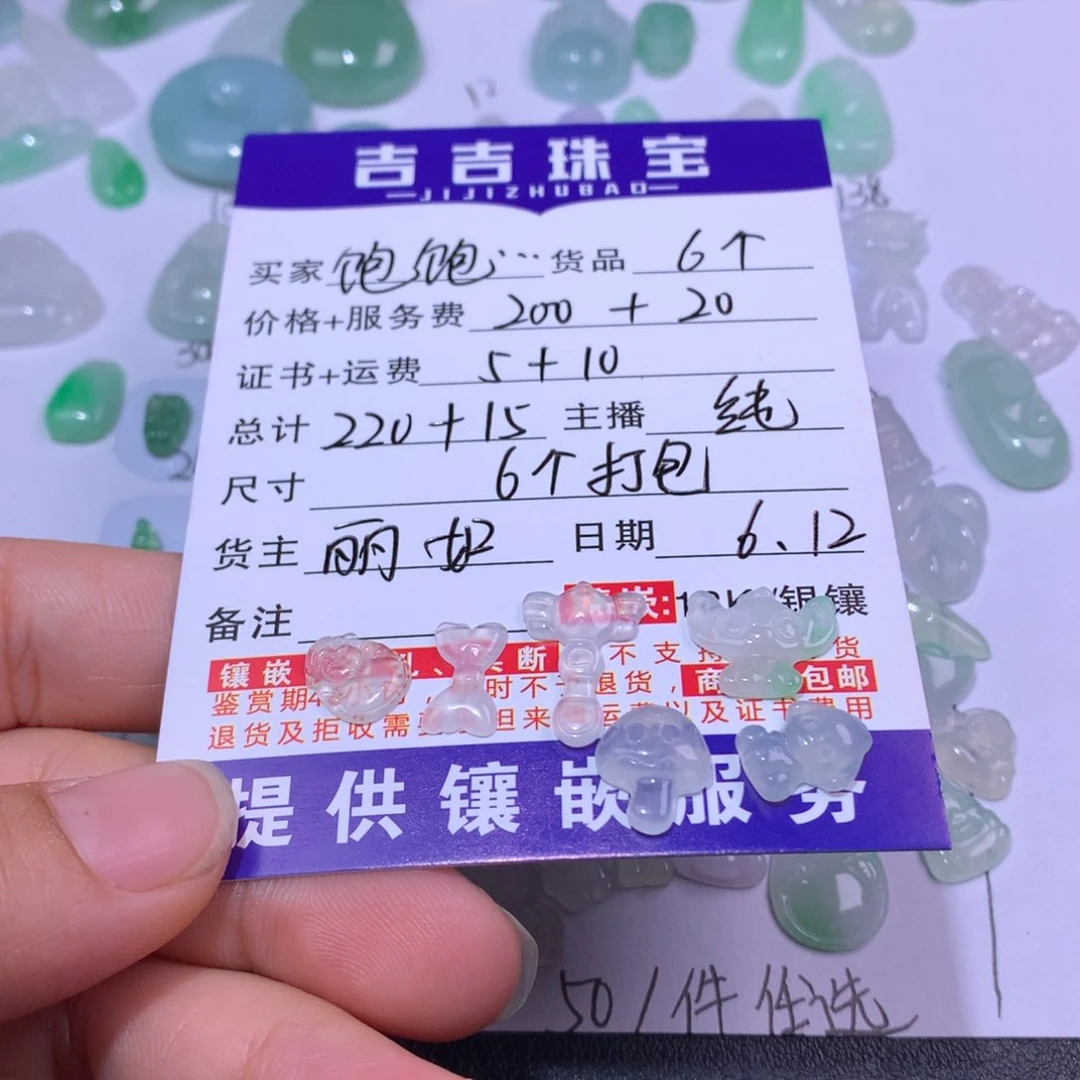 12
138
吉吉珠宝
JIJIZHUBAO
买家 饱饱... 货品 6个
价格+服务费 200 + 20
证书+运费 5+10
总计 220+15 主播 纯
尺寸 6个打包
货主 丽姐 日期 6.12
备注 嵌: 银镶
镶嵌 断 不支持 货
鉴赏期4 时不 退货, 商 包邮
退货及拒收需 但来 运费以及证书费用
提供镶嵌服务
50/件任选